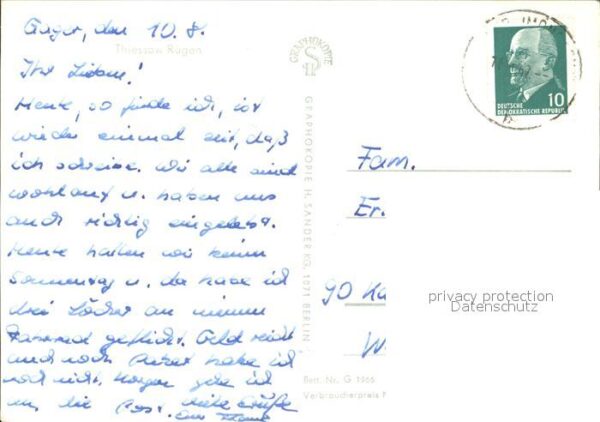 Gager, den 10.8.
Thiessow Rügen
Ihr Lieben!
Heute, so finde ich, ist
wieder einmal Zeit, daß
ich schreibe. Wir alle sind
wohlauf u. haben uns
auch richtig eingelebt.
Heute hatten wir keinen
Sonnentag u. da habe ich
drei Löcher an meinem
Fahrrad geflickt. Geld reicht
auch noch habe ich
noch nicht. Morgen gehe ich
in die Post. viele Grüße
GRAPHOKOPIE
GRAPHOKOPIE H. SANDER KG, 1071 BERLIN
DEUTSCHE
DEMOKRATISCHE REPUBLIK
10
Fam.
Er.
90 Ka
W
privacy protection
Datenschutz
Best. Nr. G 1966
Verbraucherpreis